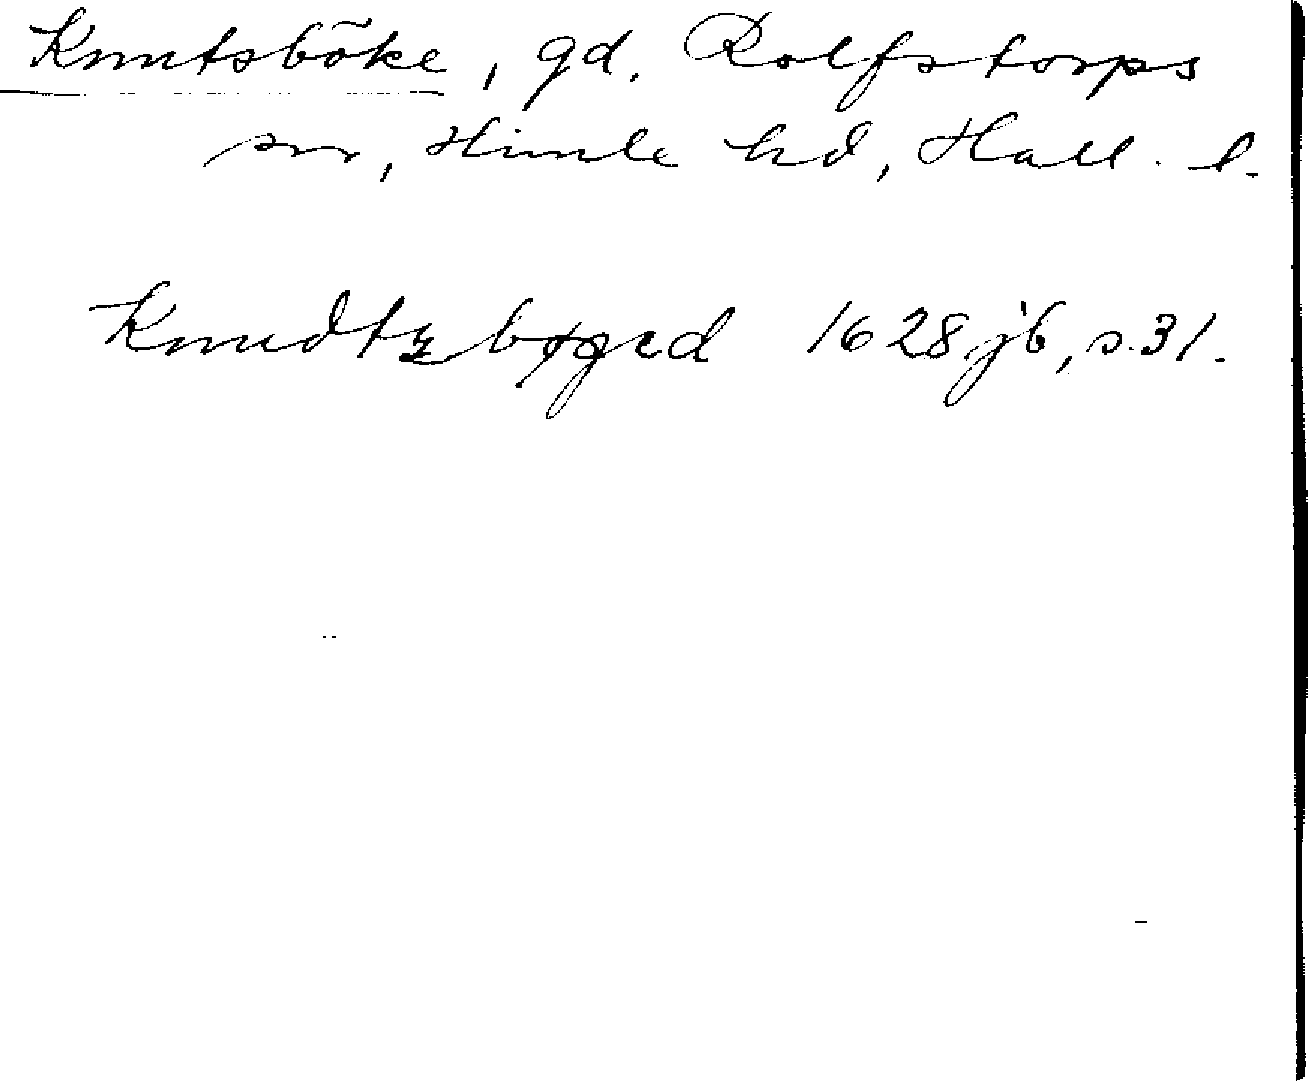 Knutsböke, gd, Rolfstorps
sn, Himle hd, Hall. l.
Knudtzbøged 1628 jb, s. 31.